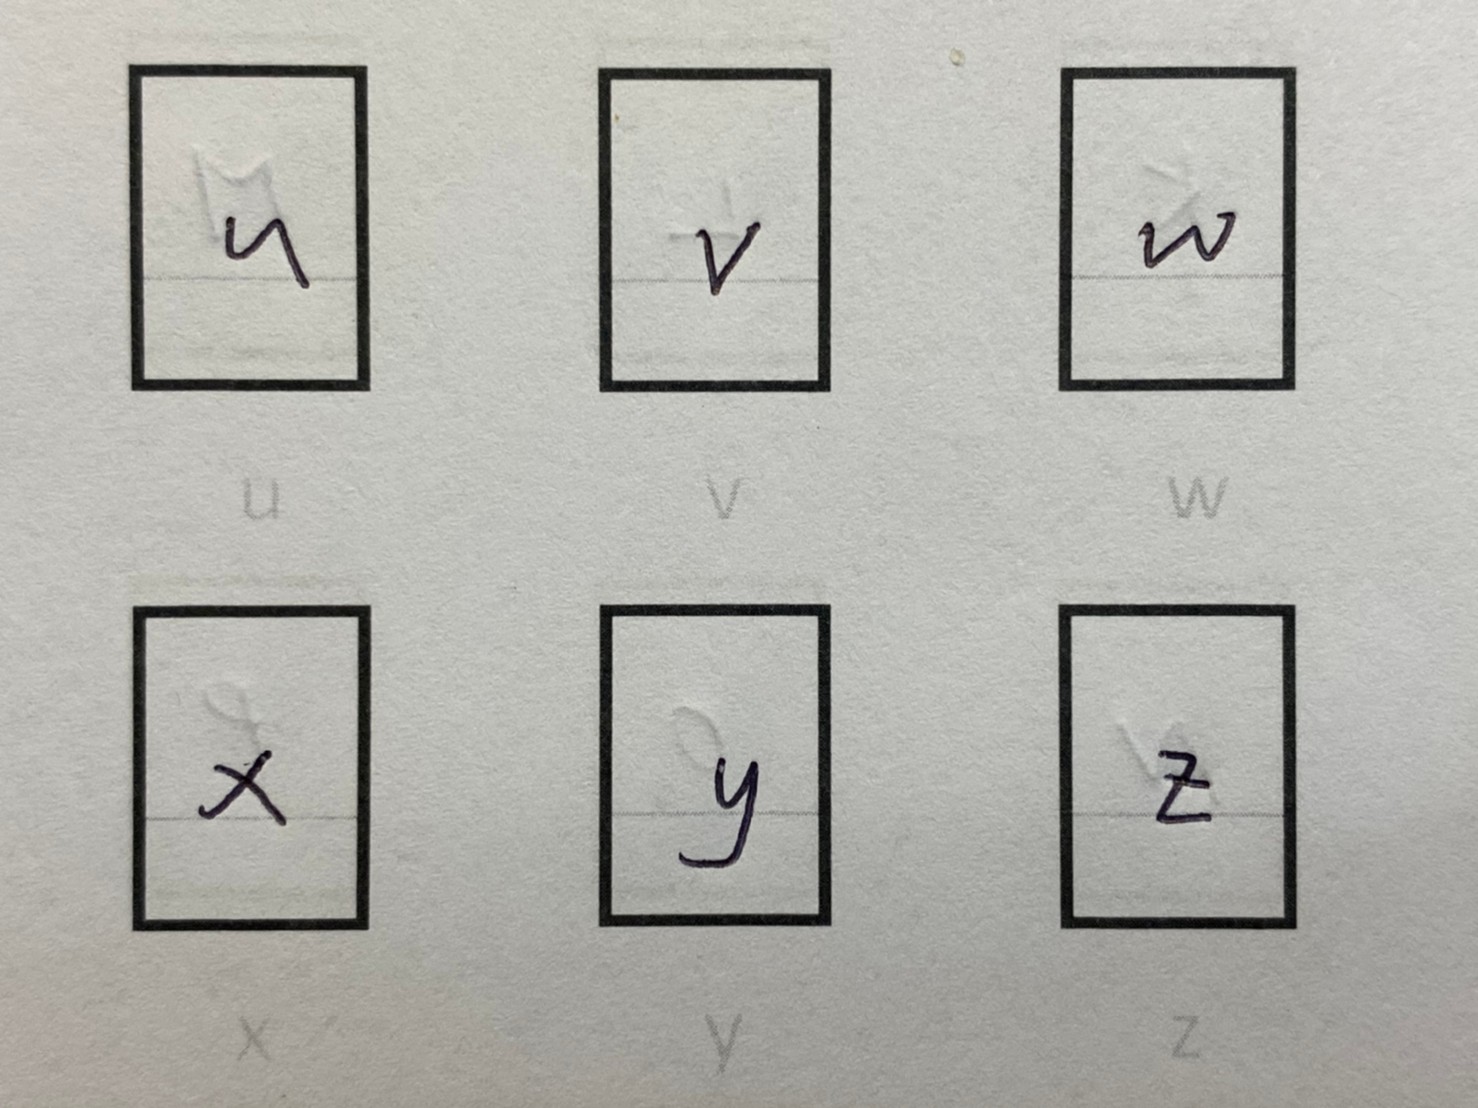 u v w
u v w
x y z
x y z